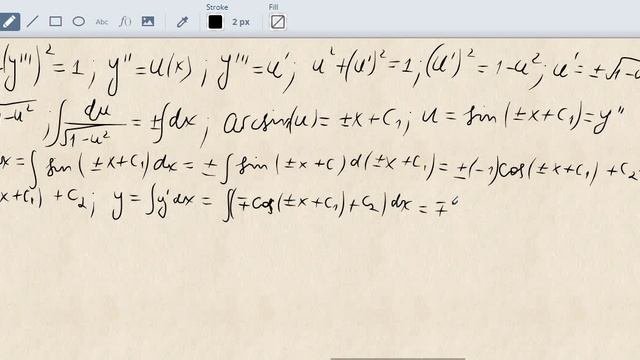 Stroke Fill
Abc f() 2 px
(y''')² = 1 ; y'' = u(x) ; y''' = u' ; u² + (u')² = 1 ; (u')² = 1 - u² ; u' = ± √1 - u
√1 - u² ; ∫ du/√1 - u² = ± ∫ dx ; arcsin(u) = ± x + C₁ ; u = sin(± x + C₁) = y''
dx = ∫ sin(± x + C₁) dx = ± ∫ sin(± x + C) d(± x + C₁) = ± (-1) cos(± x + C₁) + C₂
x + C₁) + C₂ ; y = ∫ y' dx = ∫ (∓ cos(± x + C₁) + C₂) dx = ∓